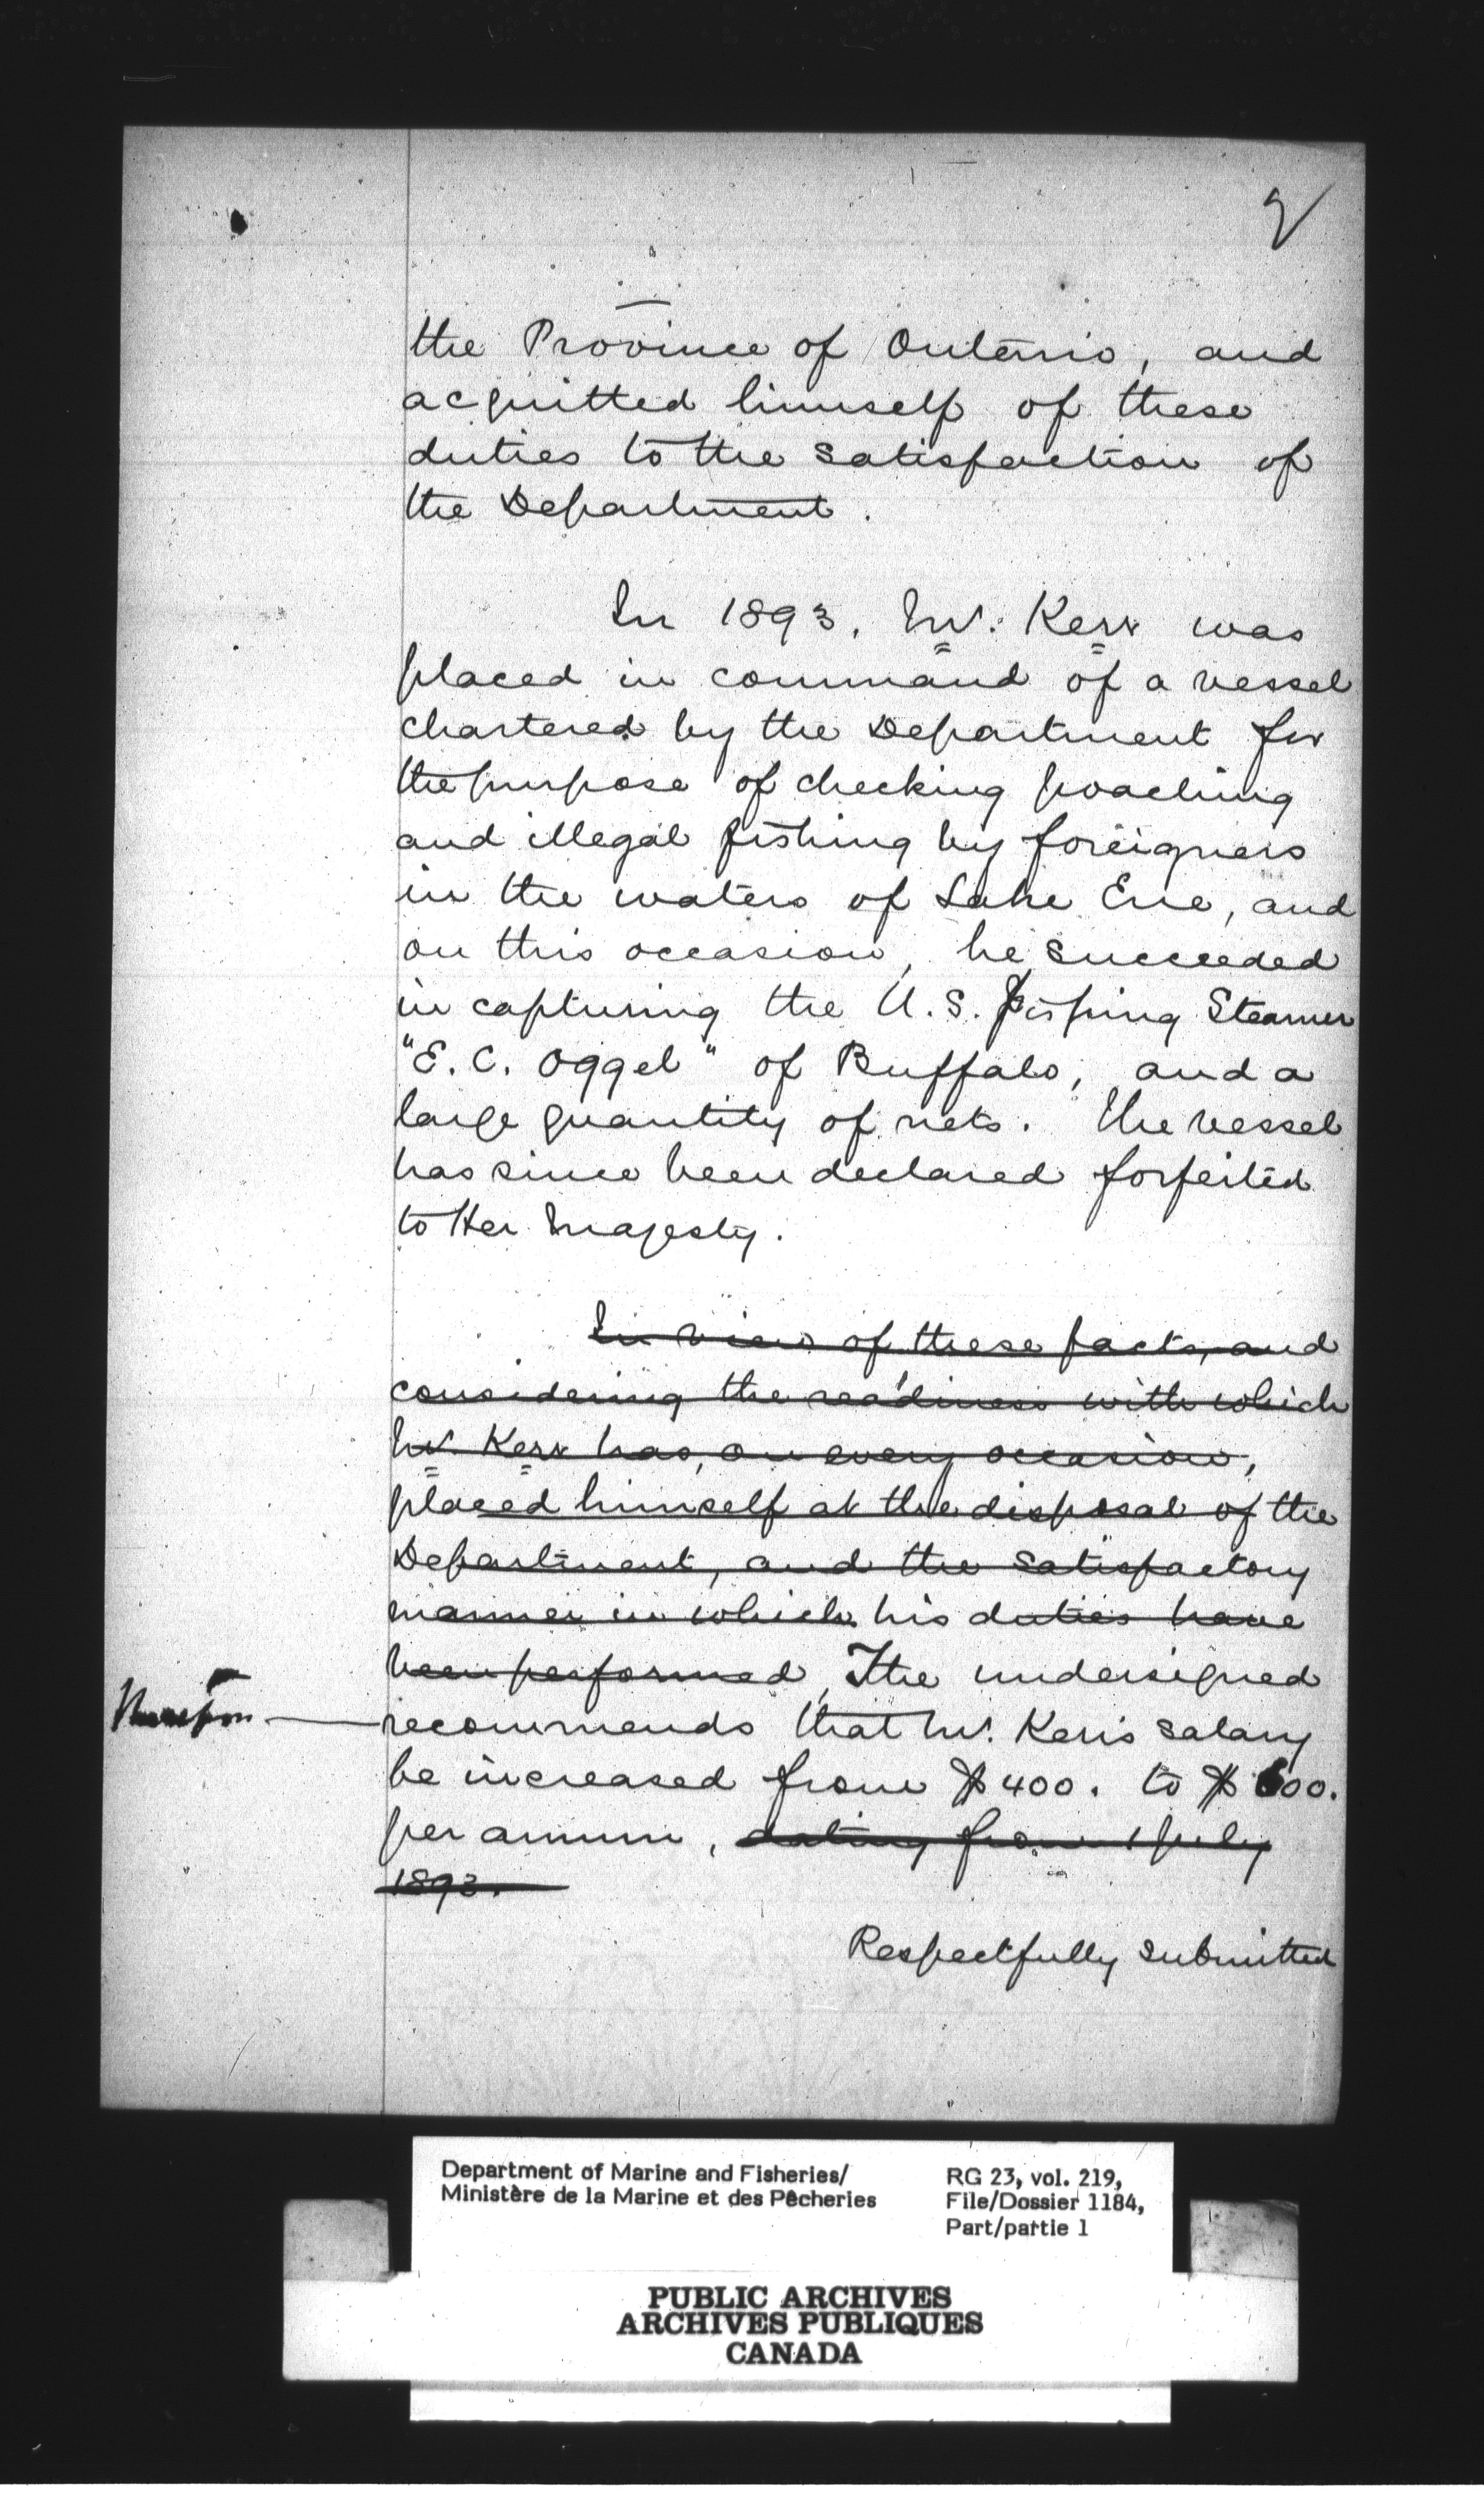 the Province of Ontario, and
acquitted himself of these
duties to the satisfaction of
the Department.
In 1893, Mr. Kerr was
placed in command of a vessel
chartered by the Department for
the purpose of checking poaching
and illegal fishing by foreigners
in the waters of Lake Erie, and
on this occasion, he succeeded
in capturing the U.S. Fishing Steamer
"E. C. Oggel" of Buffalo, and a
large quantity of nets. The vessel
has since been declared forfeited
to Her Majesty.
In view of these facts, and
considering the readiness with which
Mr. Kerr has, on every occasion,
placed himself at the disposal of the
Department, and the satisfactory
manner in which his duties have
been performed, The undersigned
recommends that Mr. Kerr's salary
be increased from $400. to $600.
per annum, dating from 1 July
1893.
Respectfully submitted
Department of Marine and Fisheries/
Ministère de la Marine et des Pêcheries
RG 23, vol. 219,
File/Dossier 1184,
Part/partie 1
PUBLIC ARCHIVES
ARCHIVES PUBLIQUES
CANADA